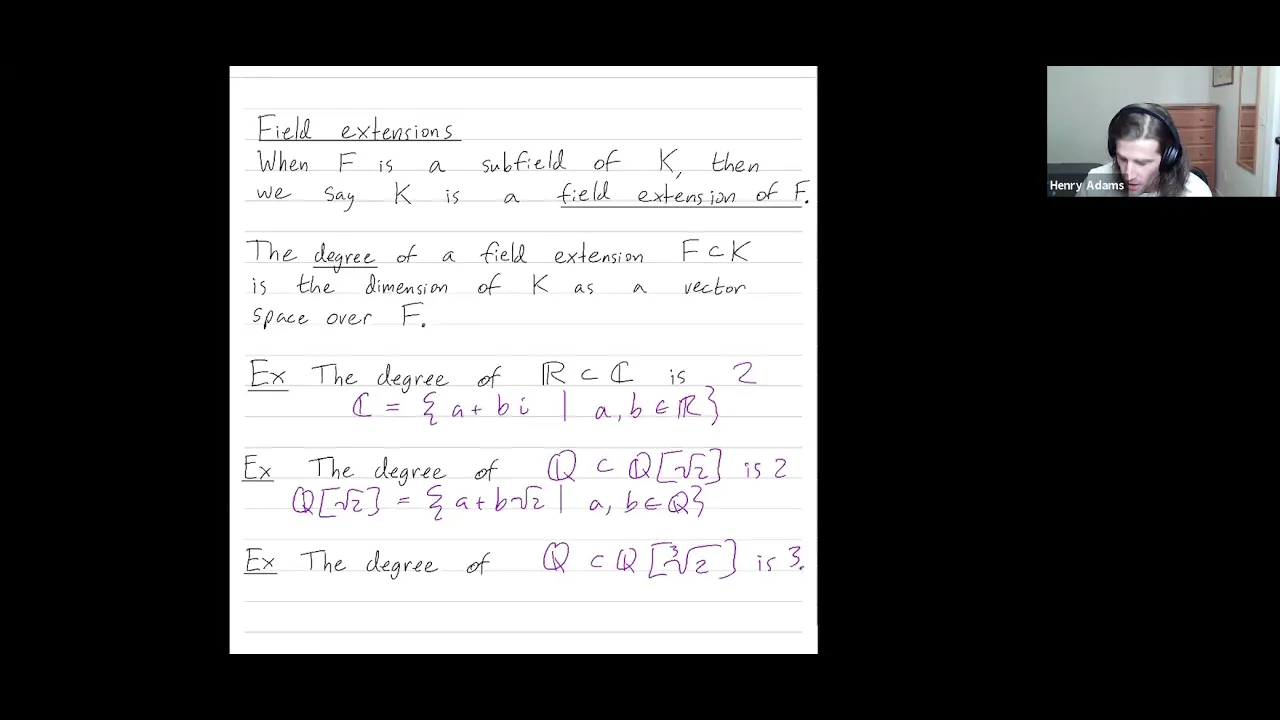 Field extensions
When F is a subfield of K, then
we say K is a field extension of F.
The degree of a field extension F ⊂ K
is the dimension of K as a vector
space over F.
Ex The degree of ℝ ⊂ ℂ is 2
ℂ = { a + b i | a, b ∈ ℝ }
Ex The degree of ℚ ⊂ ℚ[√2] is 2
ℚ[√2] = { a + b√2 | a, b ∈ ℚ }
Ex The degree of ℚ ⊂ ℚ[∛2] is 3.
Henry Adams